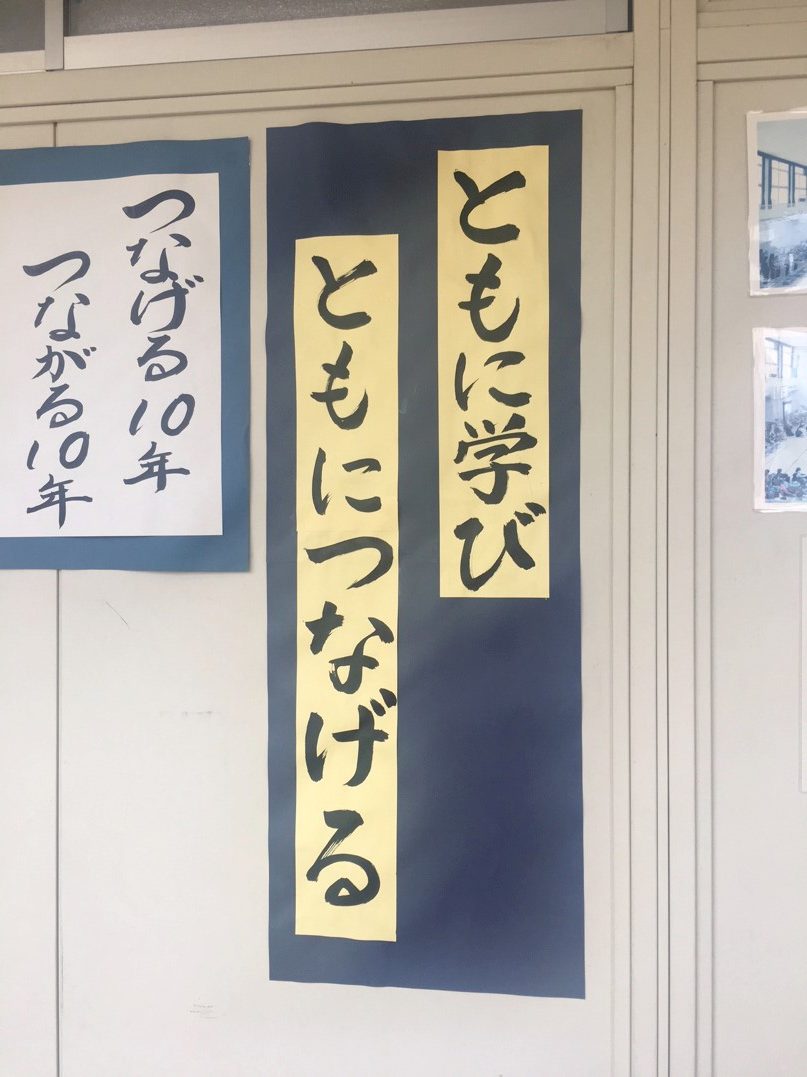 ともに学び
ともにつなげる
つなげる10年
つながる10年